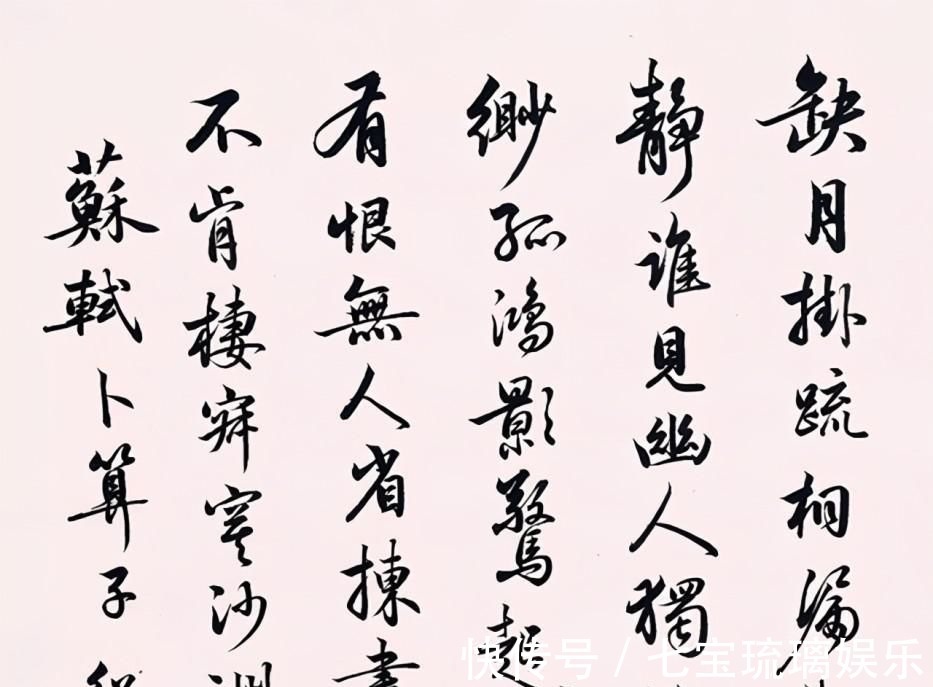 缺月掛疏桐漏
靜誰見幽人獨
緲孤鴻影驚起
有恨無人省揀盡
不肯棲寂寞沙洲
蘇軾卜算子
快传号 / 七宝琉璃娱乐